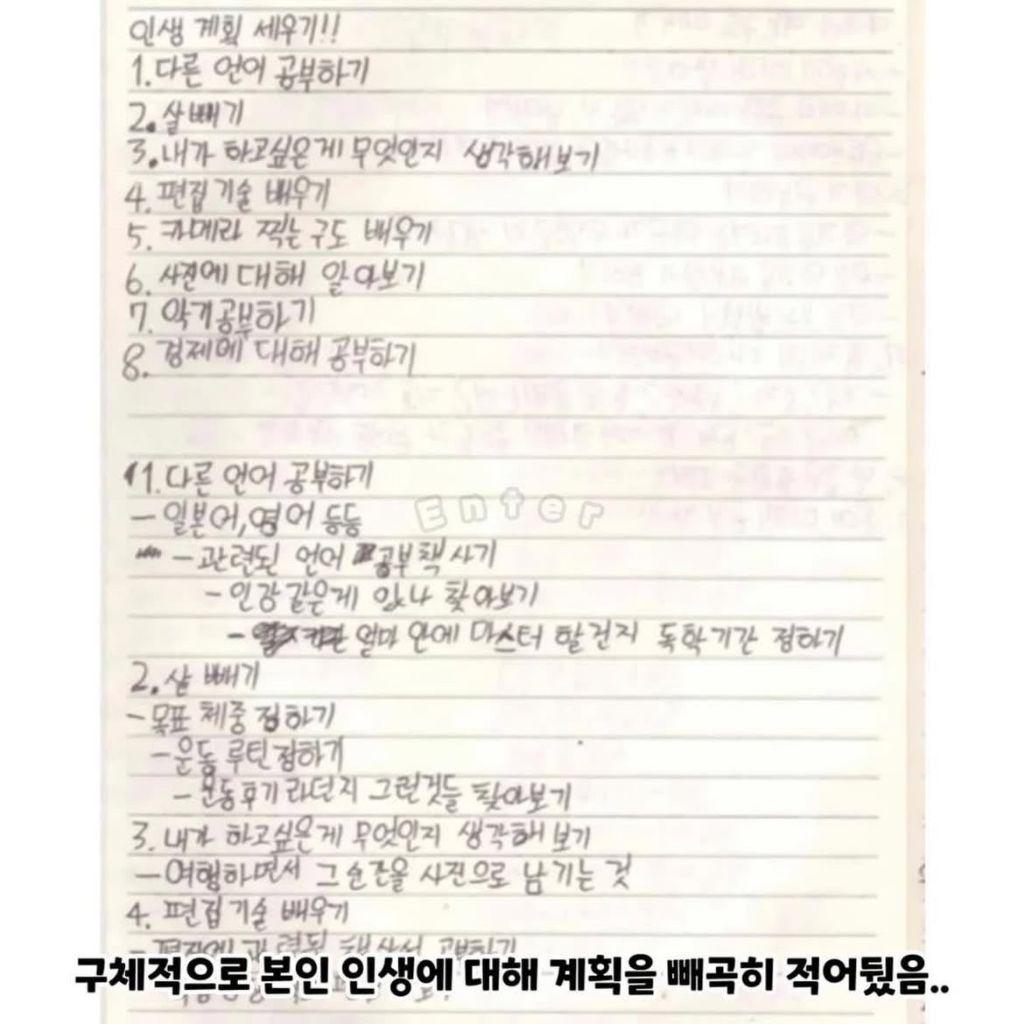 인생 계획 세우기!!
1. 다른 언어 공부하기
2. 살빼기
3. 내가 하고싶은게 무엇인지 생각해보기
4. 편집기술 배우기
5. 카메라 찍는구도 배우기
6. 사진에 대해 알아보기
7. 악기공부하기
8. 경제에 대해 공부하기
1. 다른 언어 공부하기
- 일본어, 영어 등등
Enter
- 관련된 언어 공부책 사기
- 인강같은게 있나 찾아보기
- 얼마 안에 마스터 할건지 독학기간 정하기
2. 살 빼기
- 목표 체중 정하기
- 운동 루틴정하기
- 운동후기라던지 그런것들 찾아보기
3. 내가 하고싶은게 무엇인지 생각해보기
- 여행하면서 그 순간을 사진으로 남기는 것
4. 편집기술 배우기
구체적으로 본인 인생에 대해 계획을 빼곡히 적어뒀음..